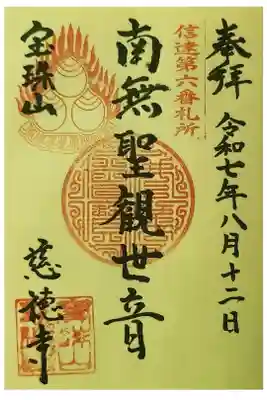 奉拝
令和七年八月十二日
信達第六番札所
南無聖觀世音
宝珠山
慈徳寺